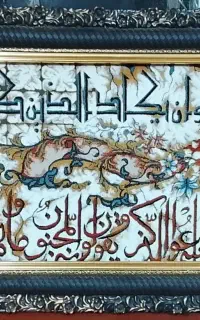 وان يكاد الذين ك
معوا الذكر ويقولون انه لمجنون وما